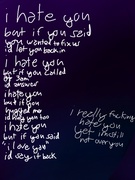 i hate you
but if you said
you wanted to fix us
id let you back in
i hate you
but if you called
at 3am
id answer
i hate you
but if you
hugged me
id hug you too
i hate you
but if you said
"i love you"
id say it back
i really fucking
hate you
yet
not over you